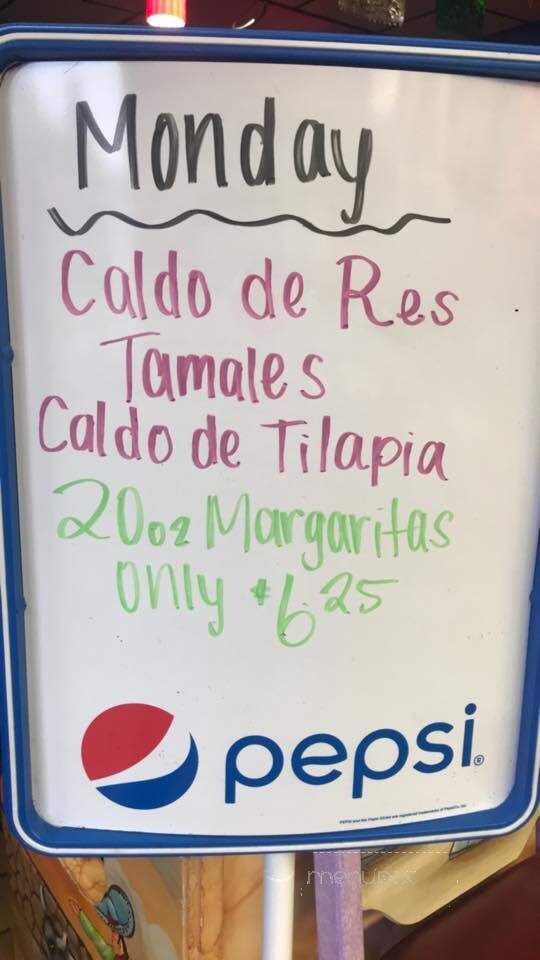 Monday
Caldo de Res
Tamales
Caldo de Tilapia
20oz Margaritas
only $6.25
pepsi®
menupix